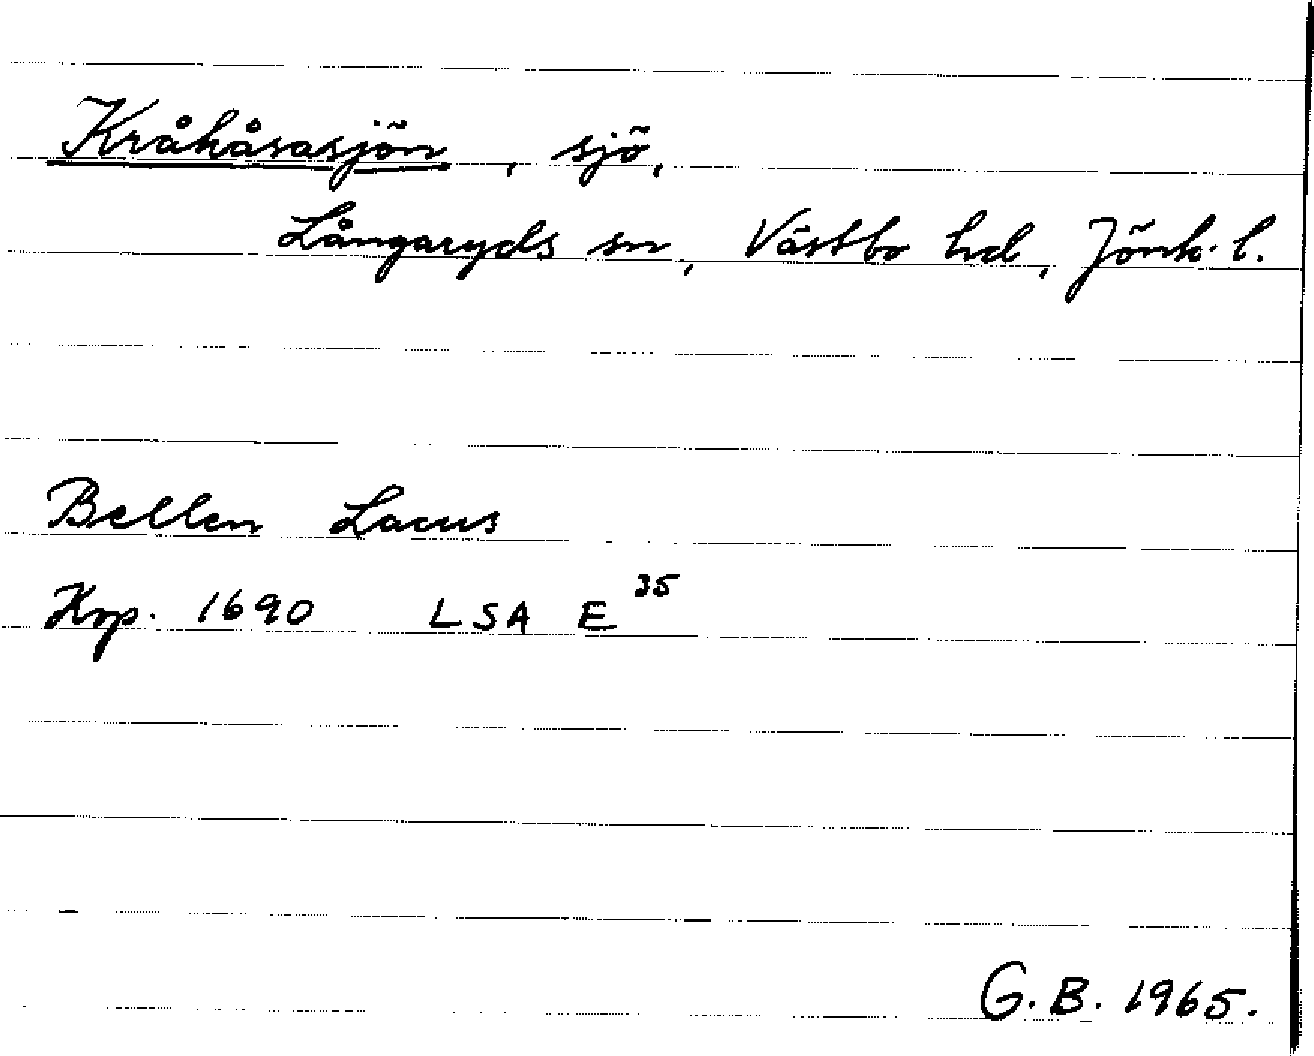 Kråhåsasjön, sjö,
Långaryds sn, Västbo hd, Jönk. l.
Bellen Lacus
Krp. 1690 LSA E 35
G. B. 1965.